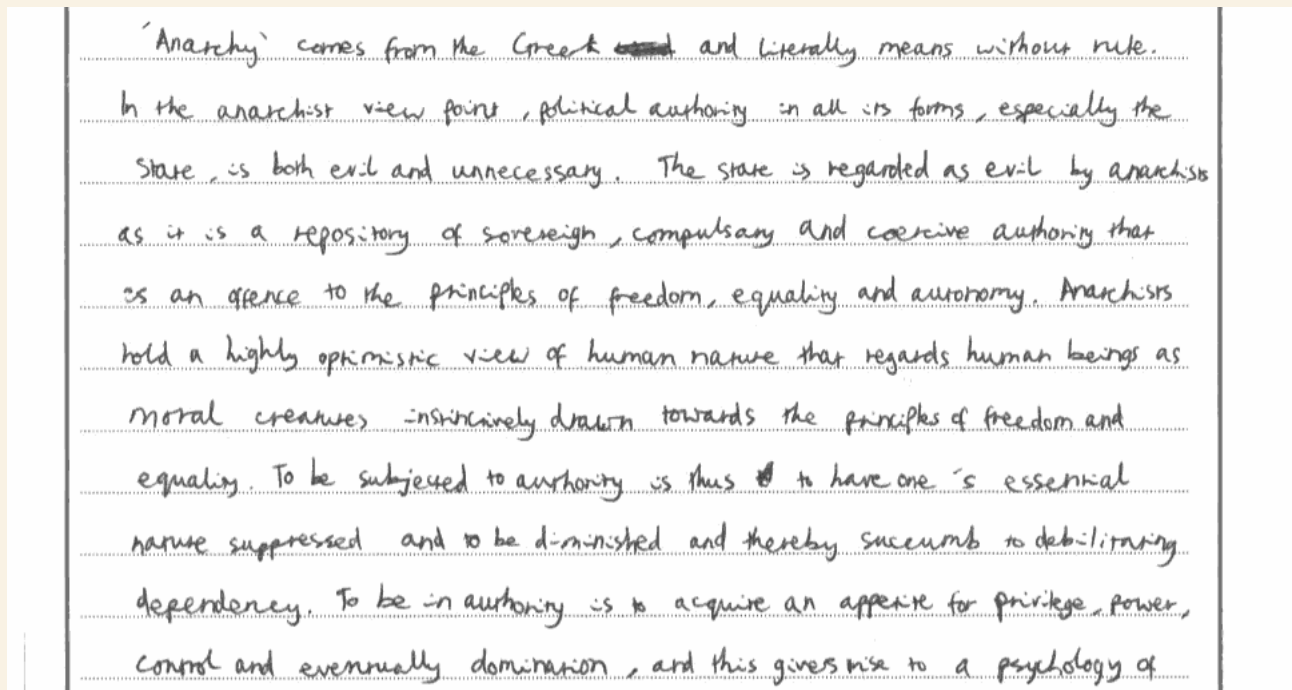 'Anarchy' comes from the Greek and literally means without rule.
In the anarchist view point, political authority in all its forms, especially the
State, is both evil and unnecessary. The state is regarded as evil by anarchists
as it is a repository of sovereign, compulsary and coercive authority that
is an offence to the principles of freedom, equality and autonomy. Anarchists
hold a highly optimistic view of human nature that regards human beings as
moral creatures instinctively drawn towards the principles of freedom and
equality. To be subjected to authority is thus to have one's essential
nature suppressed and to be diminished and thereby succumb to debilitating
dependency. To be in authority is to acquire an appetite for privilege, power,
control and eventually domination, and this gives rise to a psychology of